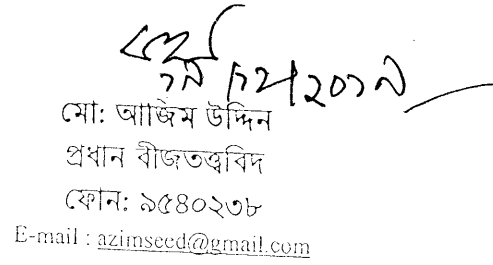 মো: আজিম উদ্দিন
প্রধান বীজতত্ত্ববিদ
ফোন: ৯৫৪০২৩৮
E-mail : azimseed@gmail.com